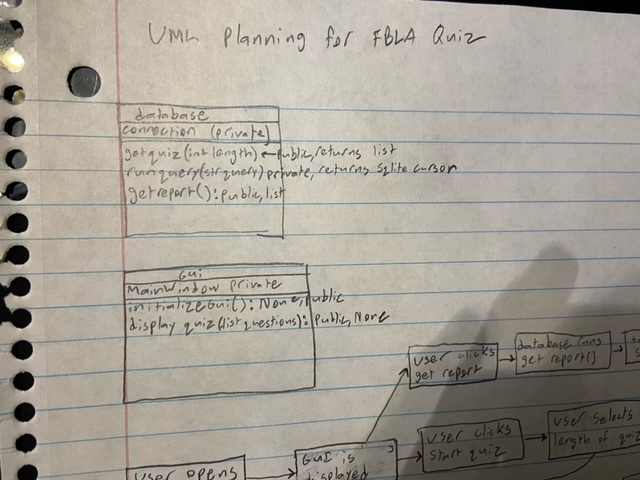 UML Planning for FBLA Quiz
database
connection (private)
getquiz(int length) ← public, returns list
runquery(str query) private, returns sqlite cursor
getreport(): public, list
Gui
MainWindow private
initializeGui(): None, public
display quiz(list questions): public, None
user clicks
get report
database runs
get report()
user clicks
start quiz
user selects
length of quiz
user opens
GUI is
displayed